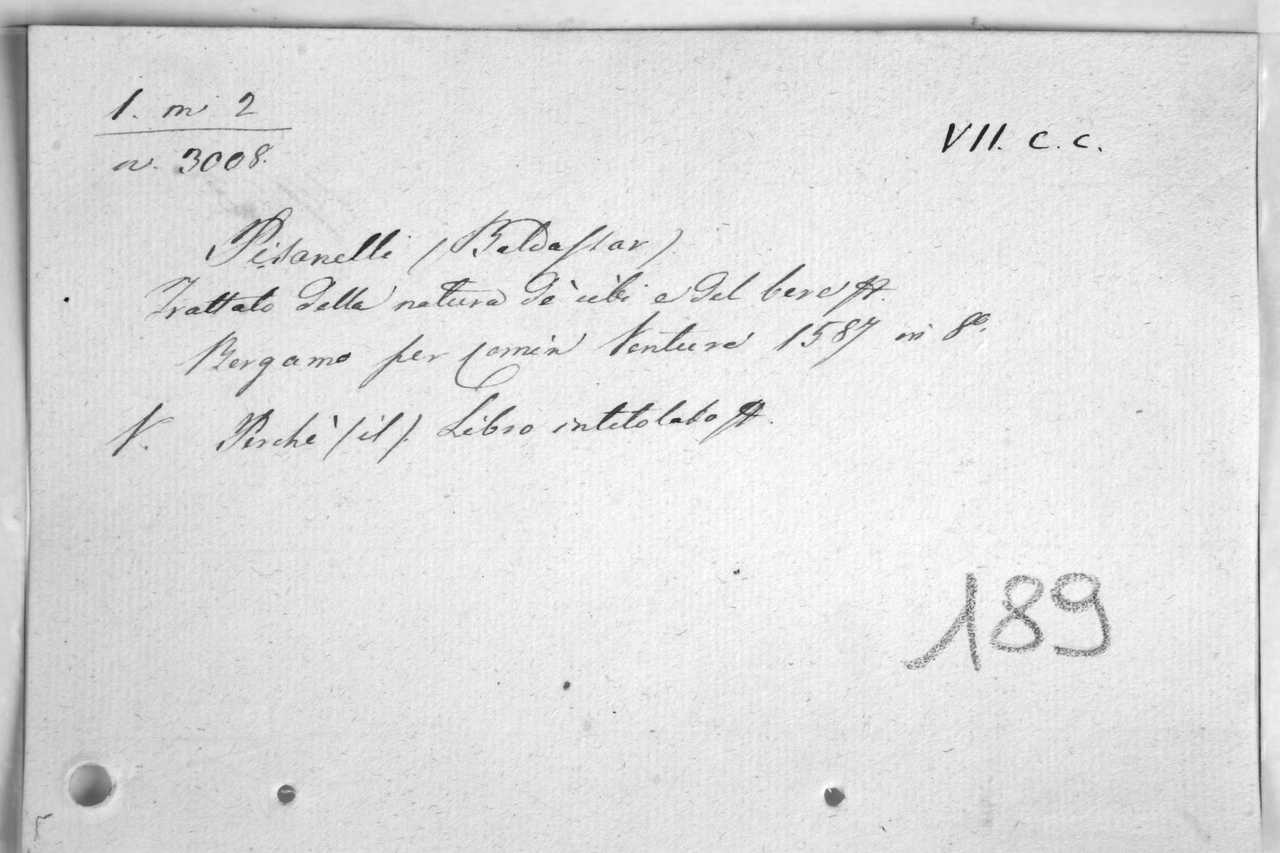 1. m 2
n. 3008.
VII. c. c.
Pisanelli (Baldassar)
Trattato della natura de' cibi e del bere
Bergamo per Comin Ventura 1587 in 8º.
V. Perchè (il). Libro intitolato
189